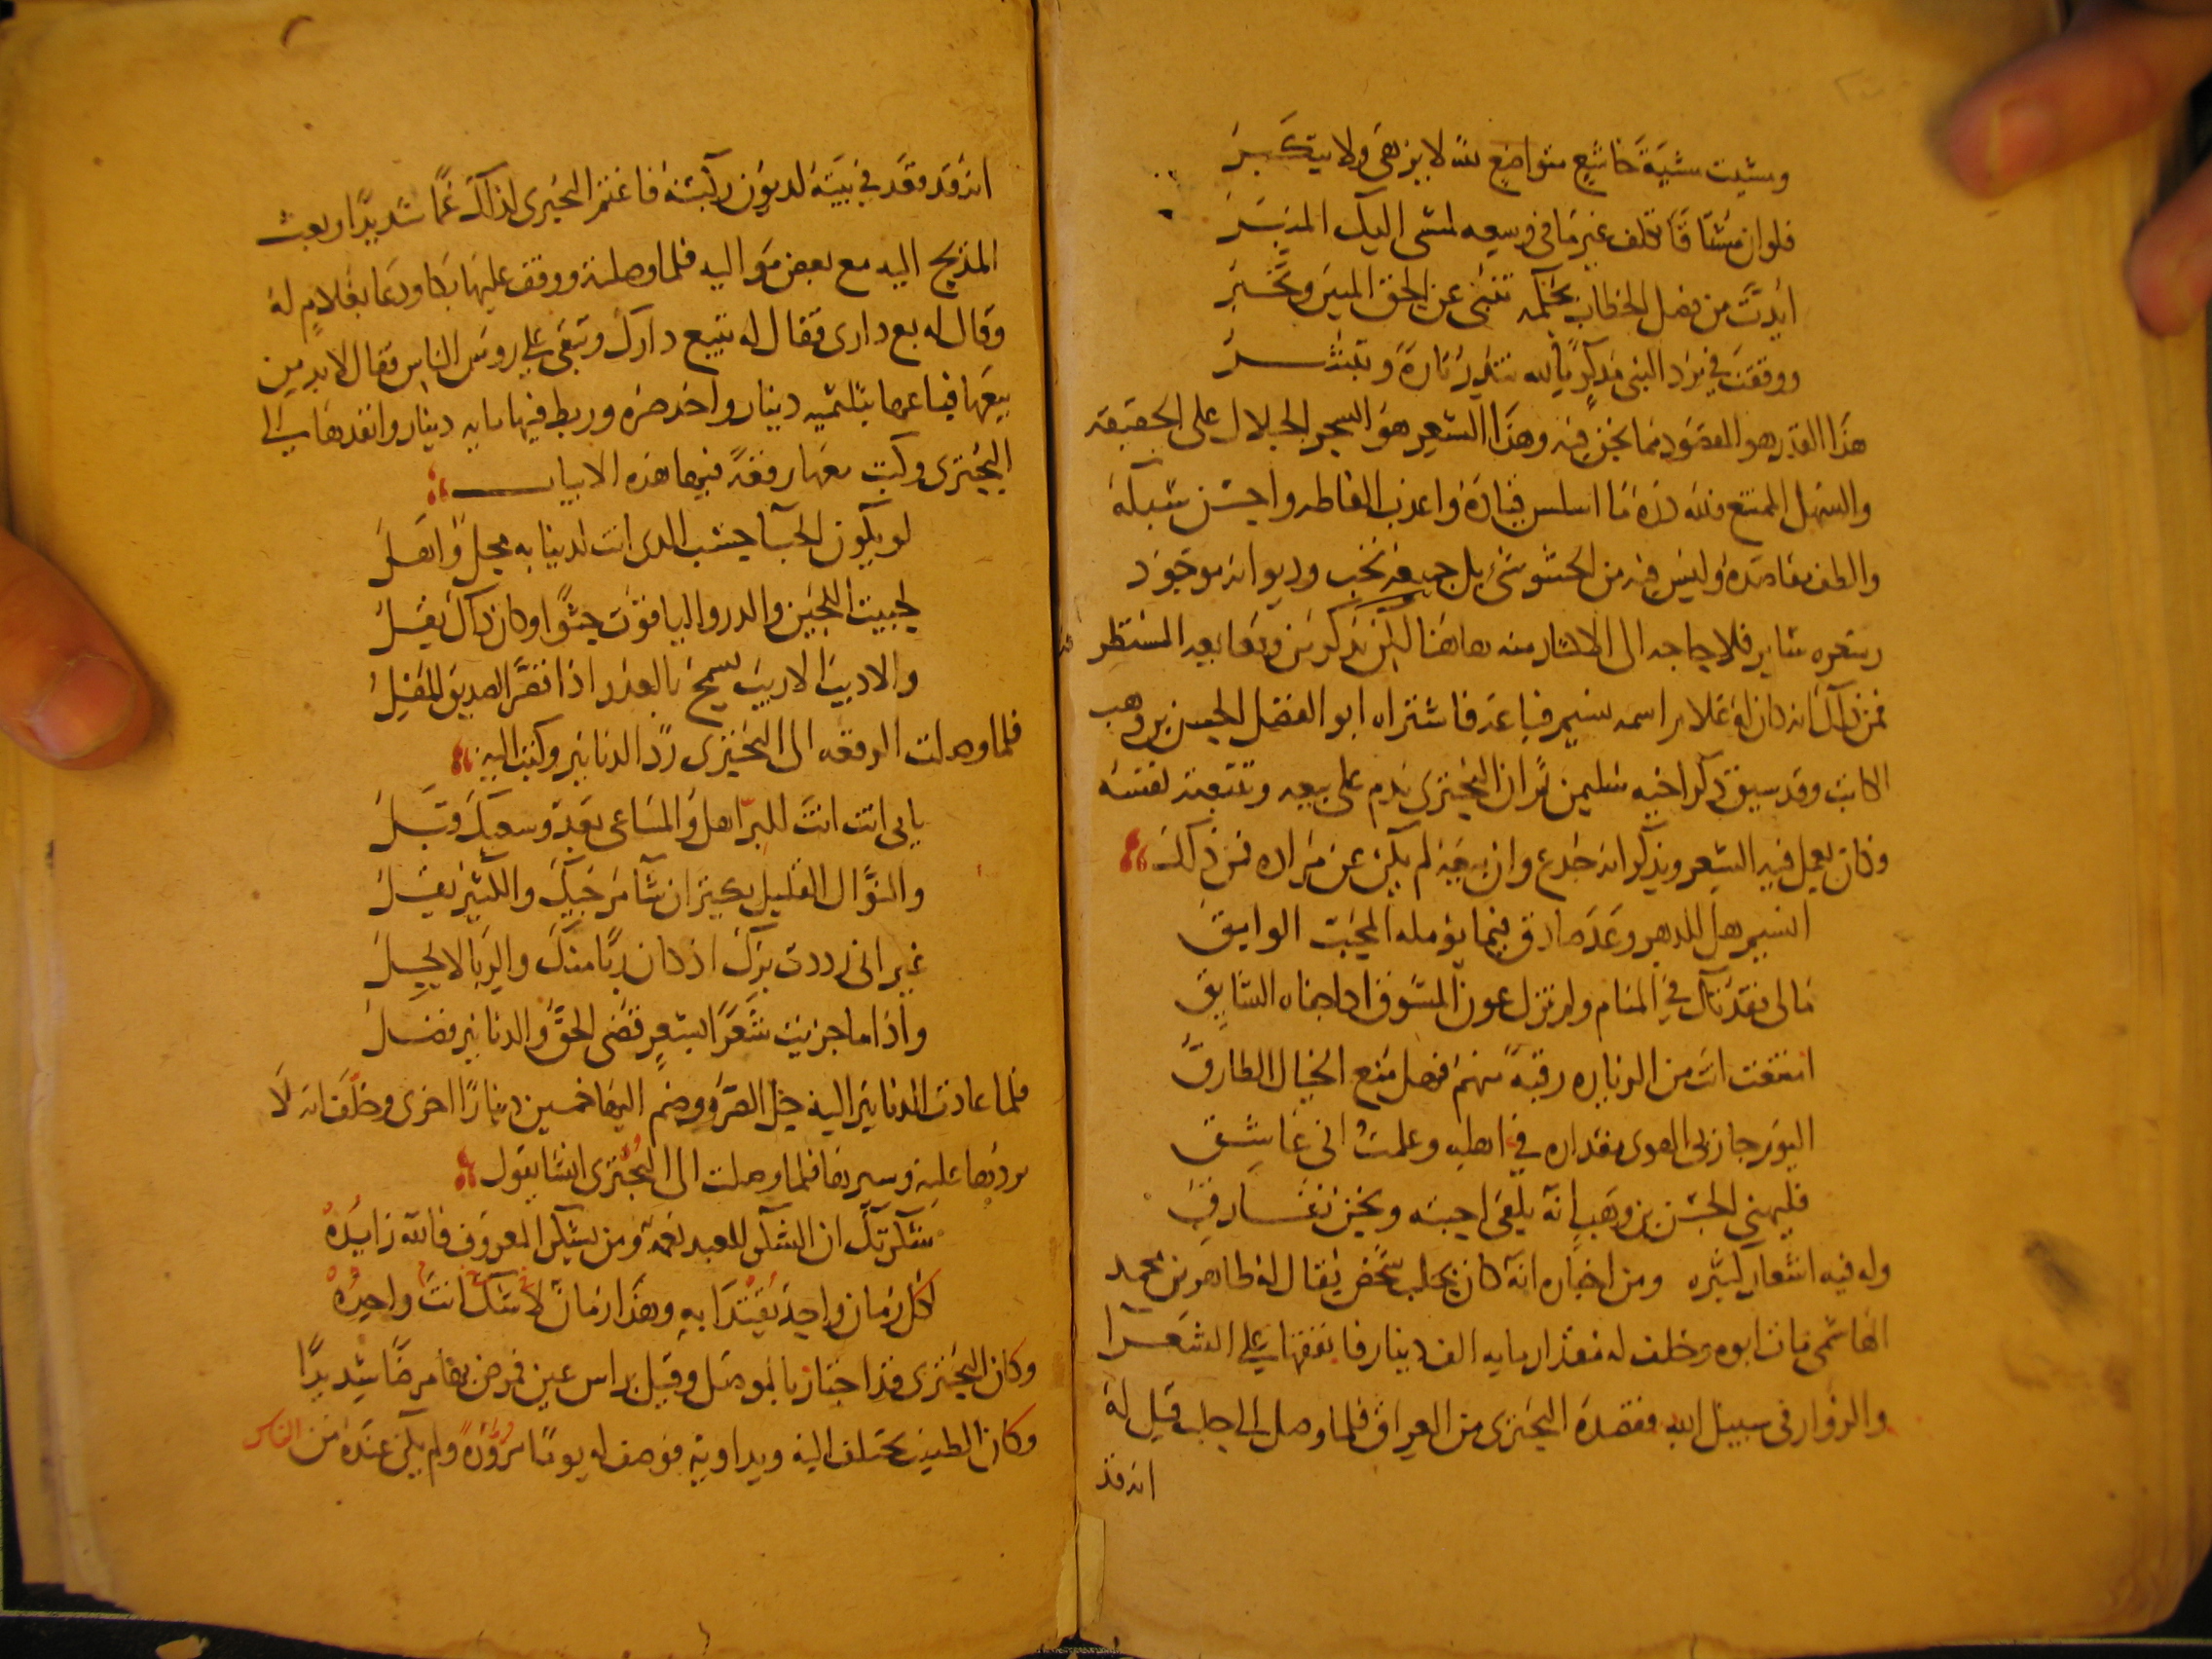 ومشيت مشية خاشع متواضع لله لا يزهى ولا يتكبر
فلو ان مشتاقا تكلف غير ما في وسعه لمشى اليك المنبر
ايدت من فصل الخطاب بحكمه تنبئ عن الحق المبين وتخبر
ووقفت في برد النبي مذكرا بالله تنذر تارة وتبشر
هذا القدر هو المقصود مما نحن فيه وهذا الشعر هو السحر الحلال على الحقيقه
والسهل الممتنع فلله دره ما اسلس قياده واعذب الفاظه واحسن سبكه
والطف مقاصده وليس فيه من الحشو شئ بل جميعه نخب وديوانه موجود
وشعره ساير فلا حاجه الى الاكثار منه هاهنا لكن نذكر من وقعايعه المستطر
فمن ذلك انه كان له غلام اسمه نسيم فباعه فاشتراه ابو الفضل الحسن بن وهب
الكاتب وقد سبق ذكر اخيه سليمن ثم ان البحترى ندم على بيعه وتتبعته نفسه
وكان يعمل فيه الشعر ويذكر انه خدع وان بيعه لم يكن عن مراده فمن ذلك
انسيم هل للدهر وعد صادق فيما يؤمله المحب الوامق
مالى فقدتك في المنام ولم تزل عون المشوق اذا جفاه الشايق
امنعت انت من الزياره رقبة منهم فهل منع الخيال الطارق
اليوم جاز بى الهوى مقداره في اهله وعلمت انى عاشق
فليهنئ الحسن بن وهب انه يلقى احبته ونحن نفارق
وله فيه اشعار كثيره ومن اخباره انه كان بحلب شخص يقال له طاهر بن محمد
الهاشمى مات ابوه وخلف له مقدار مايه الف دينار فانفقها على الشعرا
والزوار فى سبيل الله فقصده البحترى من العراق فلما وصل الى حلب قيل له
انه قد
انه قد قعد في بيته لديون ركبته فاغتم البحترى لذلك غما شديدا وبعث
المديح اليه مع بعض مواليه فلما وصلته ووقف عليها بكا ودعا بغلام له
وقال له بع دارى فقال له تبيع دارك وتبقى على روس الناس فقال لا بد من
بيعها فباعها بثلثميه دينار واخذ صره وربط فيها مايه دينار وانفذها الى
البحترى وكتب معها رقعة فيها هذه الابيات
لو يكون الحبا حسب الذى انت لدينا به محل واهل
لحبيت اللجين والدر واليا قوت حثوا وكان ذاك يقل
والاديب الاريب يسمح بالعذر اذا قصر الصديق المقل
فلما وصلت الرقعه الى البحترى رد الدنانير وكتب اليه
بابى انت انت للبر اهل والمساعى بعد وسعيك قبل
والنوال القليل يكثر ان شآ مرجيك والكثير يقل
غير انى رددت برك اذ كان ربا منك والربا لا يحل
واذا ما جزيت شعرا بشعر قضى الحق والدنانير فضل
فلما عادت الدنانير اليه حل الصره وضم اليها خمسين دينارا اخرى وحلف انه لا
يردها عليه وسيرها فلما وصلت الى البحترى انشا يقول
شكرتك ان الشكر للعبد نعمة ومن يشكر المعروف فالله زايده
لكل زمان واحد يقتدا به وهذا زمان لا شك انت واحده
وكان البحترى قد اجتاز بالموصل وقيل براس عين فمرض بها مرضا شديدا
وكان الطبيب يختلف اليه ويداويه فوصف له يوما مزوره ولم يكن عنده من الناس